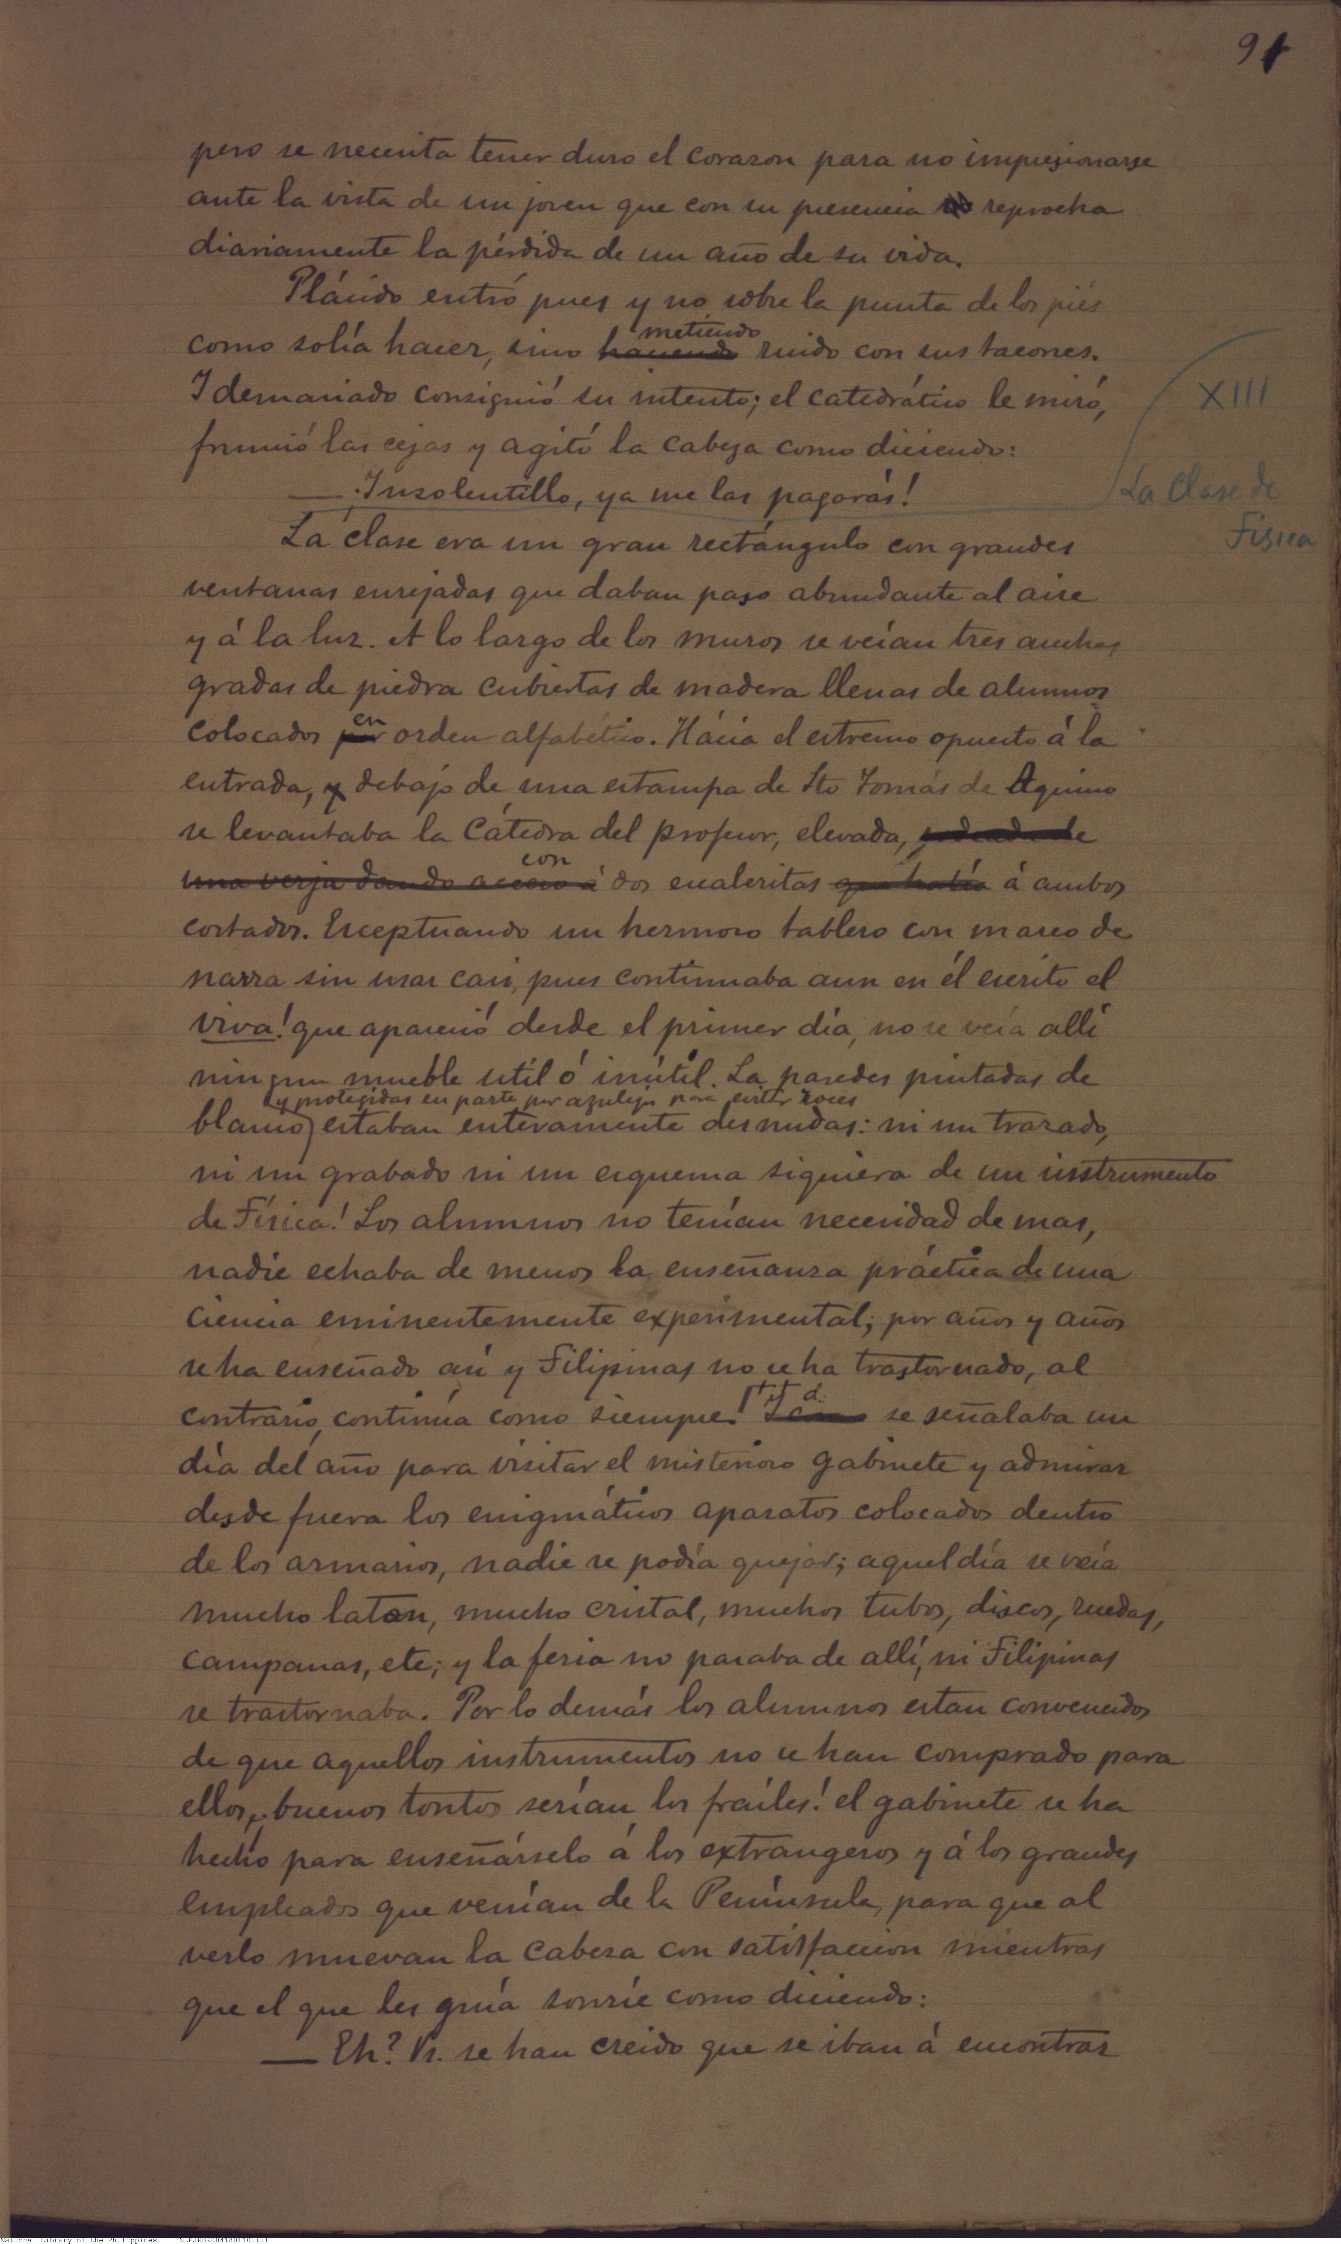 91
pero se necesita tener duro el corazon para no impresionarse
ante la vista de un joven que con su presencia reprocha
diariamente la pérdida de un año de su vida.
Plácido entró pues y no sobre la punta de los piés
como solía hacer, sino haciendo metiendo ruido con sus tacones.
Y demasiado consiguió su intento; el catedrático le miró,
XIII
frunció las cejas y agitó la cabeza como diciendo:
— ¡Insolentillo, ya me las pagarás!
La Clase de
Física
La clase era un gran rectángulo con grandes
ventanas enrejadas que daban paso abundante al aire
y á la luz. A lo largo de los muros se veían tres anchas
gradas de piedra cubiertas de madera llenas de alumnos
colocados por en orden alfabético. Hácia el estremo opuesto á la
entrada, y debajo de una estampa de Sto Tomás de Aquino
se levantaba la Cátedra del profesor, elevada, rodeada de
una verja dando acceso á con dos escaleritas que había á ambos
costados. Esceptuando un hermoso tablero con marco de
narra sin usar casi, pues continuaba aun en él escrito el
viva! que apareció desde el primer día, no se veía allí
ningun mueble util ó inútil. La paredes pintadas de
y protegidas en parte por azulejos para evitar roces
blanco estaban enteramente desnudas: ni un trazado,
ni un grabado ni un esquema siquiera de un instrumento
de Física! Los alumnos no tenían necesidad de mas,
nadie echaba de menos la enseñanza práctica de una
ciencia eminentemente experimental; por años y años
se ha enseñado así y Filipinas no se ha trastornado, al
contrario, continúa como siempre! se señalaba un
día del año para visitar el misterioso gabinete y admirar
desde fuera los enigmáticos aparatos colocados dentro
de los armarios, nadie se podía quejar; aquel día se veía
mucho laton, mucho cristal, muchos tubos, discos, ruedas,
campanas, etc; y la feria no pasaba de allí, ni Filipinas
se trastornaba. Por lo demás los alumnos estan convencidos
de que aquellos instrumentos no se han comprado para
ellos, ¡buenos tontos serían los frailes! el gabinete se ha
hecho para enseñárselo á los extrangeros y á los grandes
empleados que venían de la Península, para que al
verlo muevan la cabeza con satisfaccion mientras
que el que les guía sonríe como diciendo:
— Eh? Vs. se han creido que se iban á encontrar